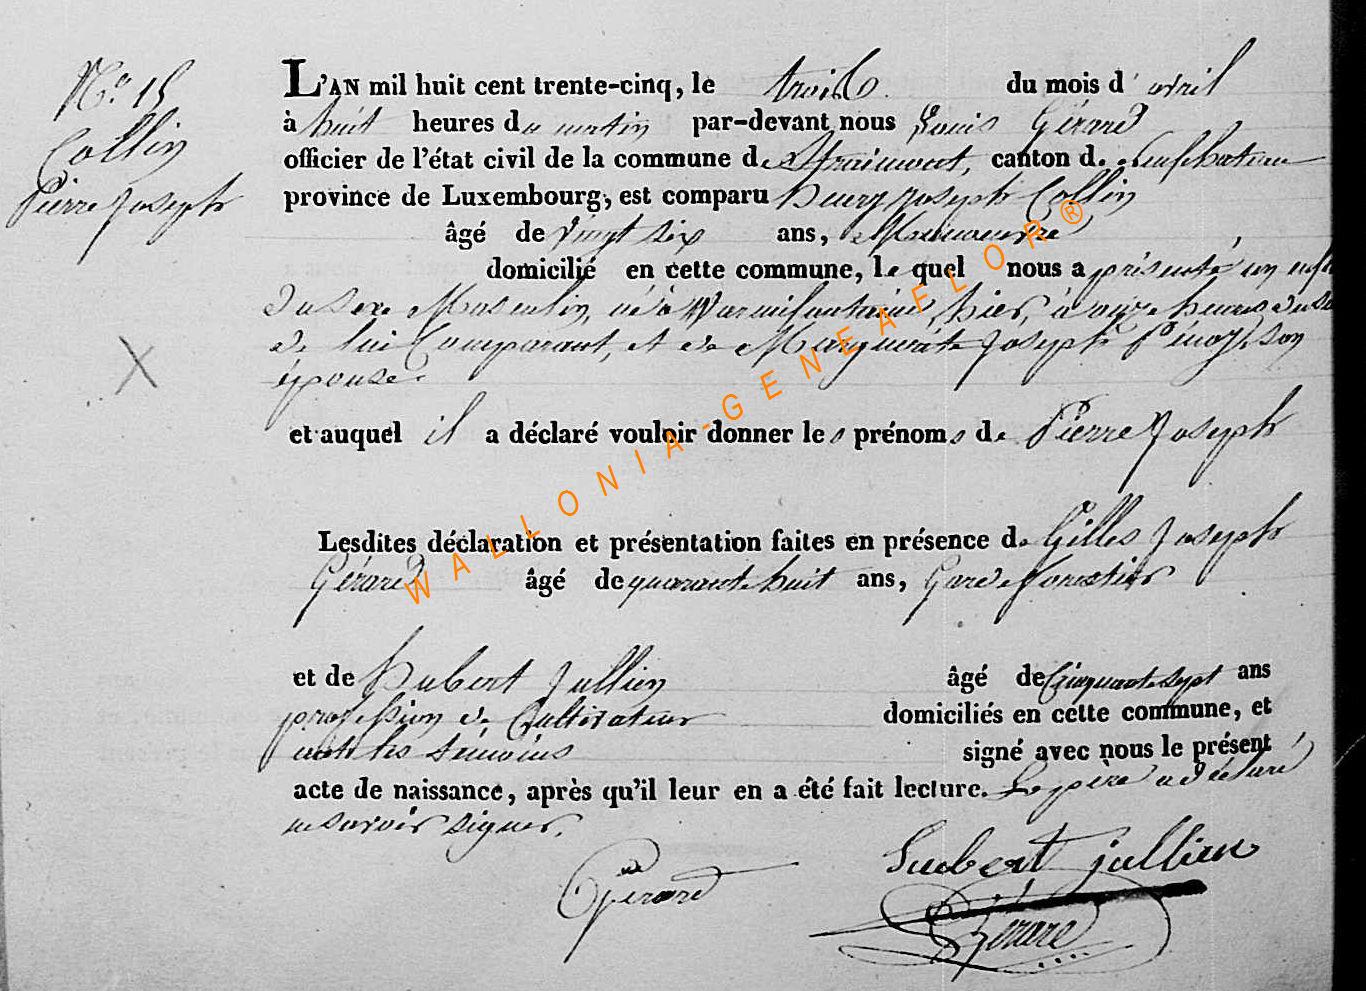 No 15
Collin
Pierre Joseph
L'AN mil huit cent trente-cinq, le trois du mois d'avril
à huit heures du matin par-devant nous Louis Gérard
officier de l'état civil de la commune de Straimont, canton de Neufchateau
province de Luxembourg, est comparu henry joseph Collin
âgé de vingt six ans, Manoeuvre
domicilié en cette commune, le quel nous a présenté un enfant
du sexe Masculin, né à Warmifontaine, hier, à onze heures du
de lui Comparant, et de Marguerite Joseph son
épouse.
et auquel il a déclaré vouloir donner les prénoms de Pierre Joseph
Lesdites déclaration et présentation faites en présence de Gilles Joseph
Gérard âgé de quarante huit ans, Garde forestier
et de hubert Jullien âgé de Cinquante sept ans
profession de Cultivateur domiciliés en cette commune, et
ont les témoins signé avec nous le présent
acte de naissance, après qu'il leur en a été fait lecture. Le père a déclaré
ne savoir signer.
Gérard
hubert jullien
Gérard
WALLONIA-GENEAFLOR®